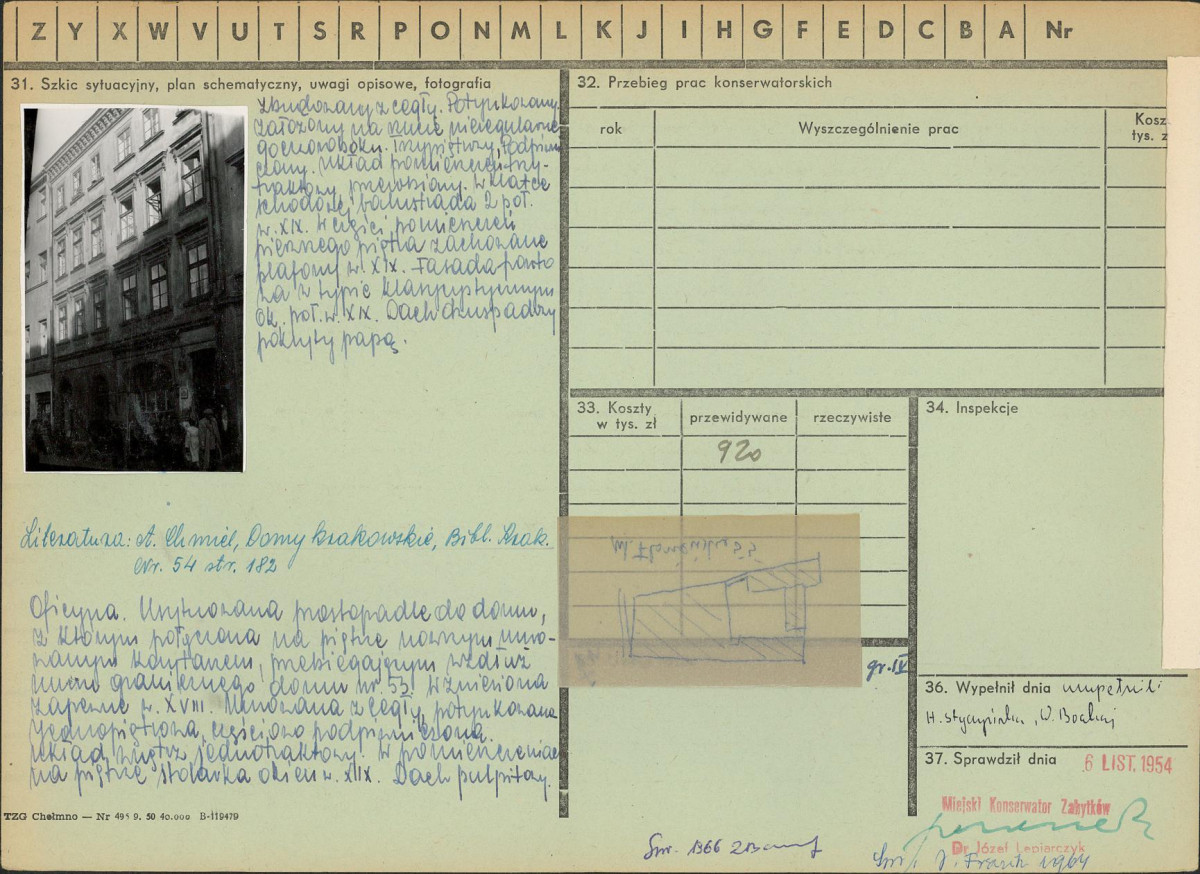 Z Y X W V U T S R P O N M L K J I H G F E D C B A Nr
31. Szkic sytuacyjny, plan schematyczny, uwagi opisowe, fotografia
Zbudowany z cegły. Potynkowany.
Założony na rzucie nieregularne-
go czworoboku. Trzypiętrowy, podpiwni-
czony. Układ pomieszczeń trzy-
traktowy, przewiązany. W klatce
schodowej balustrada 2 poł.
w. XIX. W części pomieszczeń
pierwszego piętra zachowane
plafony w. XIX. Fasada
w typie klasycystycznym
ok. poł. w. XIX. Dach dwuspadowy
pokryty papą.
Literatura: A. Chmiel, Domy krakowskie, Bibl. Krak.
Nr. 54 str. 182
Oficyna. Usytuowana prostopadle do domu,
z którym połączona na piętrze nowszym muro-
wanym korytarzem, przebiegającym wzdłuż
muru granicznego domu nr. 53. Wzniesiona
zapewne w. XVIII. Murowana z cegły, potynkowana
jednopiętrowa, częściowo podpiwniczona.
Układ wnętrz jednotraktowy. W pomieszczeniach
na piętrze stolarka okien w. XIX. Dach pulpitowy.
TZG Chełmno — Nr 495 9. 50 40.000 B-119479
32. Przebieg prac konserwatorskich
rok Wyszczególnienie prac Kosz
tys. z
33. Koszty
w tys. zł przewidywane rzeczywiste
920
gr. IV
34. Inspekcje
36. Wypełnił dnia wypełnili
H. , W.
37. Sprawdził dnia 6 LIST. 1954
Miejski Konserwator Zabytków
Dr Józef Lepiarczyk
Spr. 1966
Spr. J. 1964